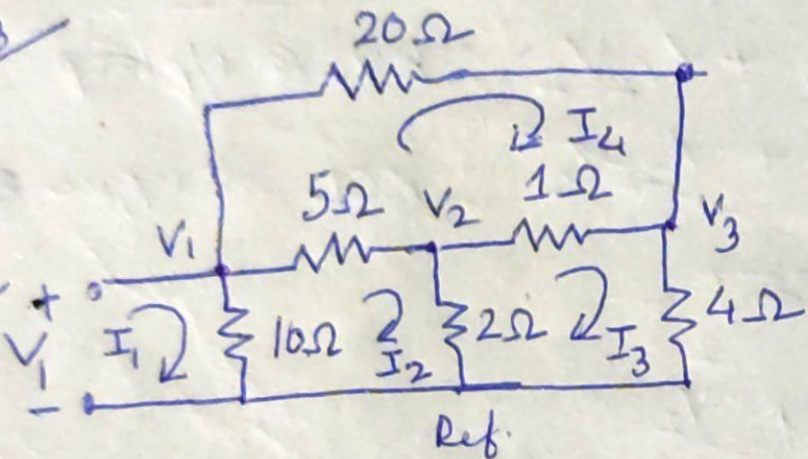 20Ω
I4
5Ω V2 1Ω
V1 V3
+
V1 I1 10Ω I2 2Ω I3 4Ω
−
Ref.